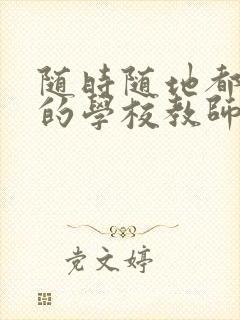 随時随地都
的學校教師
党文婷